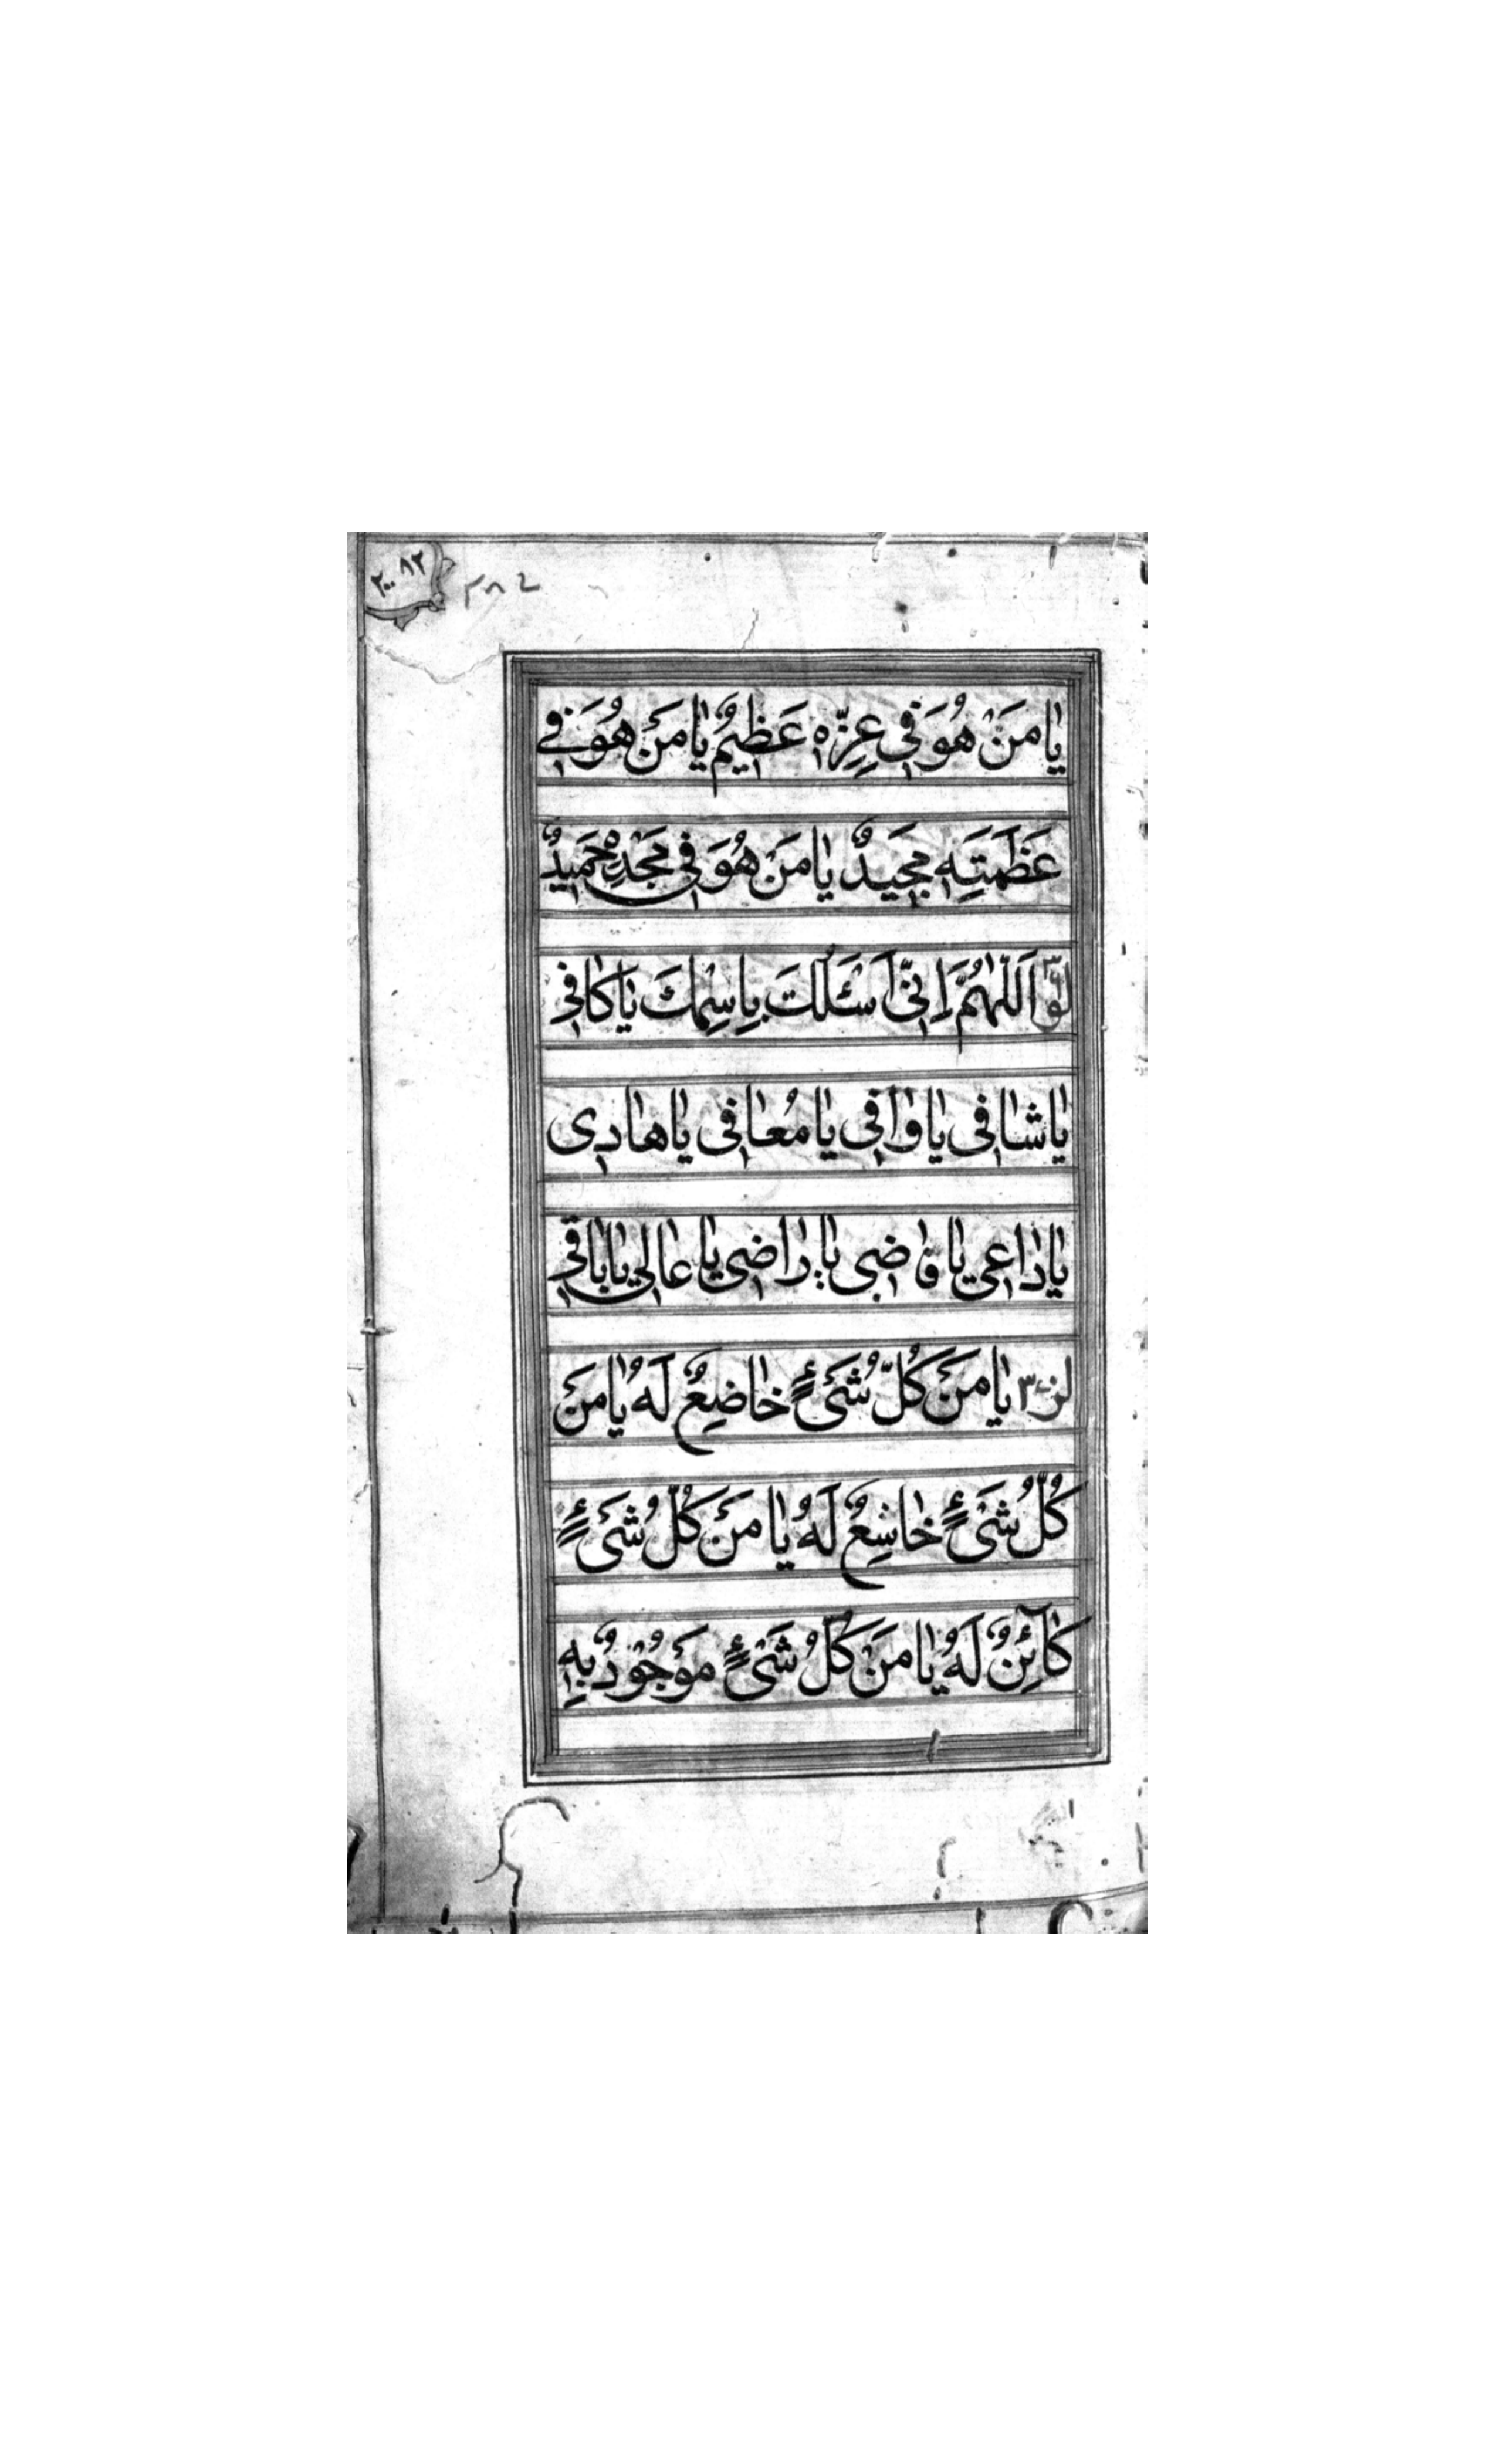 ٢٠٠٨٢
يٰا مَنْ هُوَ فِى عِزِّهِ عَظِيمٌ يٰا مَنْ هُوَ فِى
عَظَمَتِهِ مَجِيدٌ يٰا مَنْ هُوَ فِى مَجْدِهِ حَمِيدٌ
لو اَللّٰهُمَّ اِنِّى اَسْئَلُكَ بِاسْمِكَ يٰا كٰافِى
يٰا شٰافِى يٰا وٰافِى يٰا مُعٰافِى يٰا هٰادِى
يٰا دٰاعِى يٰا قٰاضِى يٰا رٰاضِى يٰا عٰالِى يٰا بٰاقِى
لز ٣ يٰا مَنْ كُلُّ شَىْءٍ خٰاضِعٌ لَهُ يٰا مَنْ
كُلُّ شَىْءٍ خٰاشِعٌ لَهُ يٰا مَنْ كُلُّ شَىْءٍ
كٰائِنٌ لَهُ يٰا مَنْ كُلُّ شَىْءٍ مَوْجُودٌ بِهِ